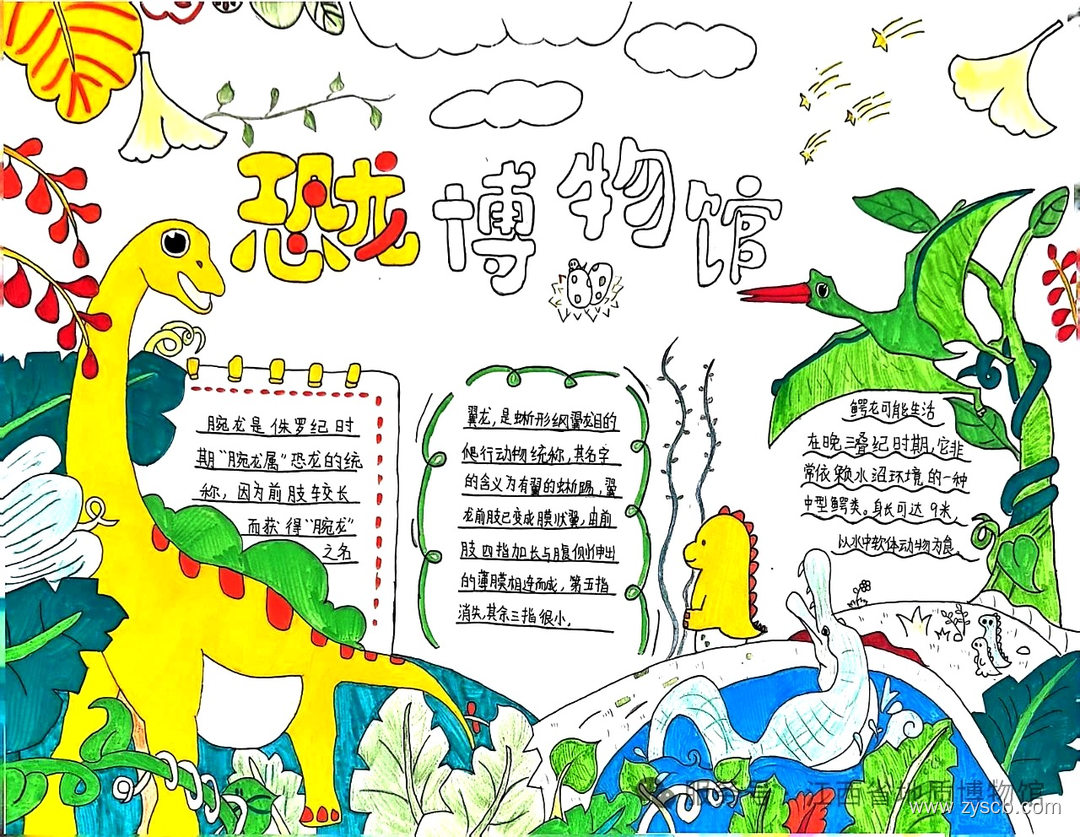 恐龙博物馆
腕龙是侏罗纪时
期“腕龙属”恐龙的统
称，因为前肢较长
而获得“腕龙”
之名
翼龙，是蜥形纲翼龙目的
爬行动物统称，其名字
的含义为有翼的蜥蜴，翼
龙前肢已变成膜状翼，由前
肢四指加长与腹侧伸出
的薄膜相连而成，第五指
消失，其余三指很小，
鳄龙可能生活
在晚三叠纪时期，它非
常依赖水沼环境的一种
中型鳄类。身长可达9米，
以水中软体动物为食
江西省地质博物馆
www.zyscb.com